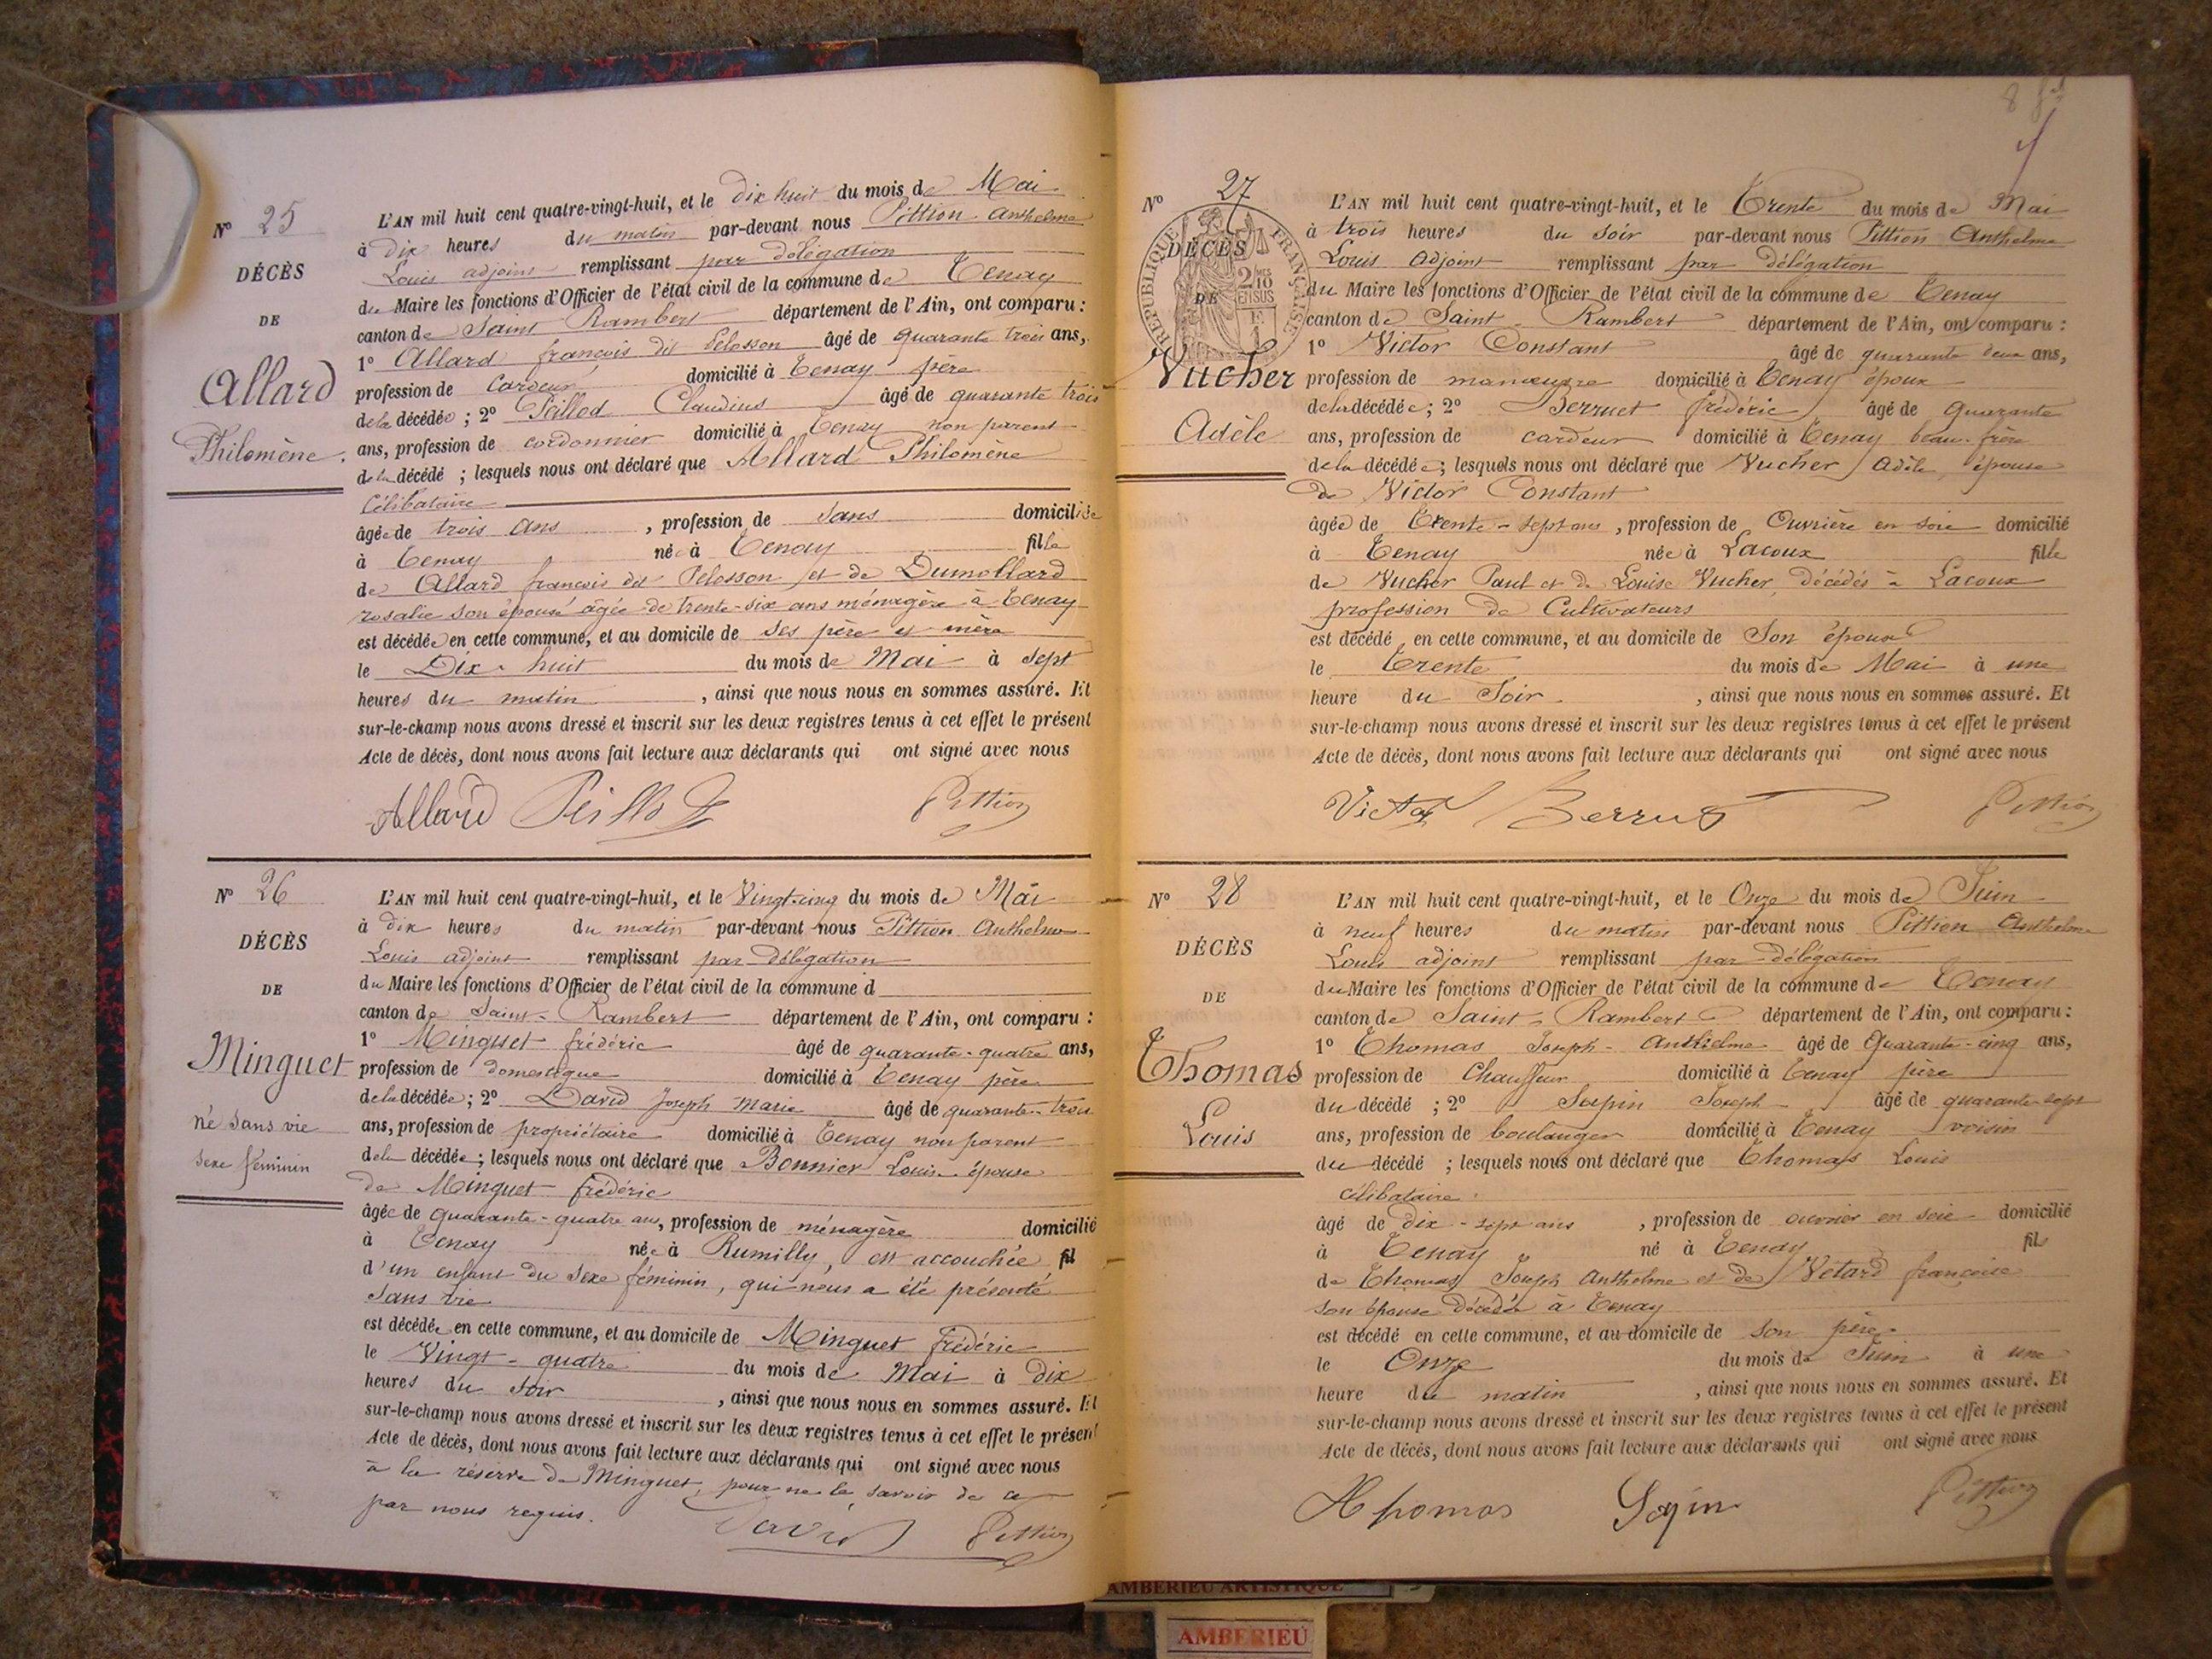 N° 25
DÉCÈS
DE
Allard
Philomène.
L'AN mil huit cent quatre-vingt-huit, et le dix huit du mois de Mai
à dix heures du matin par-devant nous Pittion Anthelme
Louis adjoint remplissant par délégation
du Maire les fonctions d'Officier de l'état civil de la commune de Tenay
canton de Saint Rambert département de l'Ain, ont comparu :
1° Allard françois dit Pelosson âgé de quarante trois ans,
profession de Cardeur domicilié à Tenay père
de la décédée ; 2° Peillod Claudius âgé de quarante trois
ans, profession de cordonnier domicilié à Tenay non parent
de la décédé ; lesquels nous ont déclaré que Allard Philomène
Célibataire
âgée de trois ans , profession de sans domiciliée
à Tenay née à Tenay fille
de Allard françois dit Pelosson et de Dumollard
rosalie son épouse âgée de trente-six ans ménagère à Tenay
est décédée en cette commune, et au domicile de ses père et mère
le Dix-huit du mois de Mai à sept
heures du matin , ainsi que nous nous en sommes assuré. Et
sur-le-champ nous avons dressé et inscrit sur les deux registres tenus à cet effet le présent
Acte de décès, dont nous avons fait lecture aux déclarants qui ont signé avec nous
Allard Peillod Pittion
N° 26
DÉCÈS
DE
Minguet
né sans vie
sexe féminin
L'AN mil huit cent quatre-vingt-huit, et le Vingt-cinq du mois de Mai
à dix heures du matin par-devant nous Pittion Anthelme
Louis adjoint remplissant par délégation
du Maire les fonctions d'Officier de l'état civil de la commune d
canton de Saint-Rambert département de l'Ain, ont comparu :
1° Minguet frédéric âgé de quarante-quatre ans,
profession de domestique domicilié à Tenay père
de la décédée ; 2° David Joseph Marie âgé de quarante-trois
ans, profession de propriétaire domicilié à Tenay non parent
de la décédée ; lesquels nous ont déclaré que Bonnier Louise épouse
de Minguet frédéric
âgée de quarante-quatre ans, profession de ménagère domicilié
à Tenay née à Rumilly, est accouchée fil
d'un enfant du sexe féminin, qui nous a été présenté
sans vie
est décédée en cette commune, et au domicile de Minguet frédéric
le Vingt-quatre du mois de Mai à dix
heures du soir , ainsi que nous nous en sommes assuré. Et
sur-le-champ nous avons dressé et inscrit sur les deux registres tenus à cet effet le présent
Acte de décès, dont nous avons fait lecture aux déclarants qui ont signé avec nous
à la réserve de Minguet, pour ne le savoir de ce
par nous requis.
David Pittion
8
N° 27
DÉCÈS
DE
RÉPUBLIQUE FRANÇAISE
2/10 EN SUS
Vucher
Adèle
L'AN mil huit cent quatre-vingt-huit, et le Trente du mois de Mai
à trois heures du soir par-devant nous Pittion Anthelme
Louis Adjoint remplissant par délégation
du Maire les fonctions d'Officier de l'état civil de la commune de Tenay
canton de Saint-Rambert département de l'Ain, ont comparu :
1° Victor Constant âgé de quarante deux ans,
profession de manœuvre domicilié à Tenay époux
de la décédée ; 2° Berruet frédéric âgé de quarante
ans, profession de cardeur domicilié à Tenay beau-frère
de la décédée ; lesquels nous ont déclaré que Vucher Adèle, épouse
de Victor Constant
âgée de Trente-sept ans , profession de Ouvrière en soie domicilié
à Tenay née à Lacoux fille
de Vucher Paul et de Louise Vucher, décédés à Lacoux
profession de Cultivateurs
est décédé en cette commune, et au domicile de son époux
le Trente du mois de Mai à une
heure du Soir , ainsi que nous nous en sommes assuré. Et
sur-le-champ nous avons dressé et inscrit sur les deux registres tenus à cet effet le présent
Acte de décès, dont nous avons fait lecture aux déclarants qui ont signé avec nous
Victor Berruet Pittion
N° 28
DÉCÈS
DE
Thomas
Louis
L'AN mil huit cent quatre-vingt-huit, et le Onze du mois de Juin
à neuf heures du matin par-devant nous Pittion Anthelme
Louis adjoint remplissant par délégation
du Maire les fonctions d'Officier de l'état civil de la commune de Tenay
canton de Saint-Rambert département de l'Ain, ont comparu :
1° Thomas Joseph-Anthelme âgé de Quarante-cinq ans,
profession de Chauffeur domicilié à Tenay père
du décédé ; 2° Joseph âgé de quarante-sept
ans, profession de boulanger domicilié à Tenay voisin
du décédé ; lesquels nous ont déclaré que Thomas Louis
célibataire.
âgé de dix-sept ans , profession de ouvrier en soie domicilié
à Tenay né à Tenay fils
de Thomas Joseph Anthelme et de Vétard françoise
son épouse décédée à Tenay
est décédé en cette commune, et au domicile de son père
le Onze du mois de Juin à une
heure du matin , ainsi que nous nous en sommes assuré. Et
sur-le-champ nous avons dressé et inscrit sur les deux registres tenus à cet effet le présent
Acte de décès, dont nous avons fait lecture aux déclarants qui ont signé avec nous
Thomas Pittion
AMBERIEU ARTISTIQUE
AMBERIEU